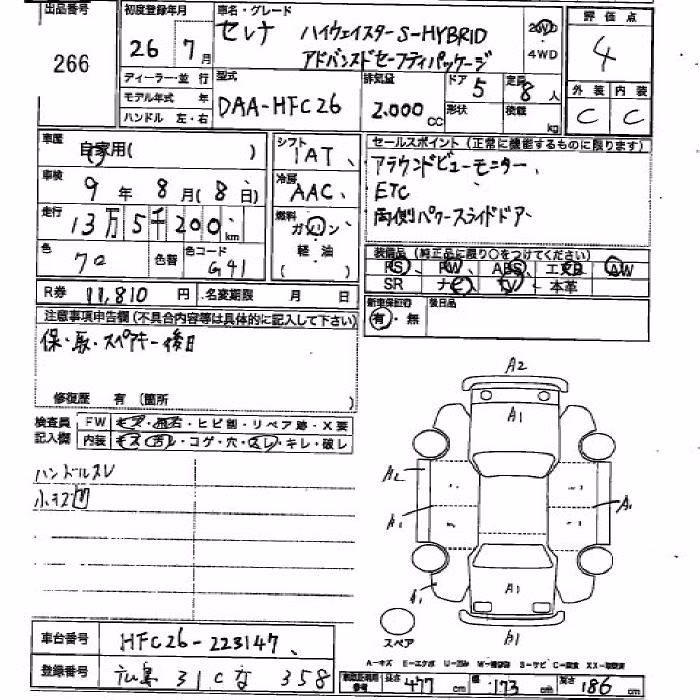 出品番号
266
初度登録年月
26年7月
車名・グレード
セレナ ハイウェイスターS-HYBRID
アドバンスドセーフティパッケージ
2WD
4WD
評価点
4
外装 内装
C C
ディーラー・並行
モデル年式 年
ハンドル 左・右
型式
DAA-HFC26
排気量
2.000cc
ドア
5
形状
定員
8人
積載
kg
車歴
自家用( )
車検
9年8月(8日)
走行
13万5千200km
色
クロ
色替
色コード
G41
シフト
IAT
冷房
AAC
燃料
ガソリン
軽油
( )
セールスポイント(正常に機能するものに限ります)
アラウンドビューモニター
ETC
両側パワースライドドア
装備品(純正品に限り○をつけてください)
PS・PW・ABS・エアB・AW
SR ナビ・TV・本革
R券 11,810円 名変期限 月 日
新車保証書
有・無
後日品
注意事項申告欄(不具合内容等は具体的に記入して下さい)
保・取・スペアキー後日
修復歴 有(箇所 )
検査員
記入欄
FW キズ・飛石・ヒビ割・リペア跡・X要
内装 キズ・汚レ・コゲ・穴・スレ・キレ・破レ
ハンドルスレ
小キズ凹
A2
A1
A2
A1
A1
A1
A1
B1
スペア
A-キズ E-エクボ U-凹み W-補修跡 S-サビ C-腐食 XX-交換済
車台番号
HFC26-223147
登録番号
広島 31C な 358
参考
長さ 477cm 幅 173cm 高さ 186cm